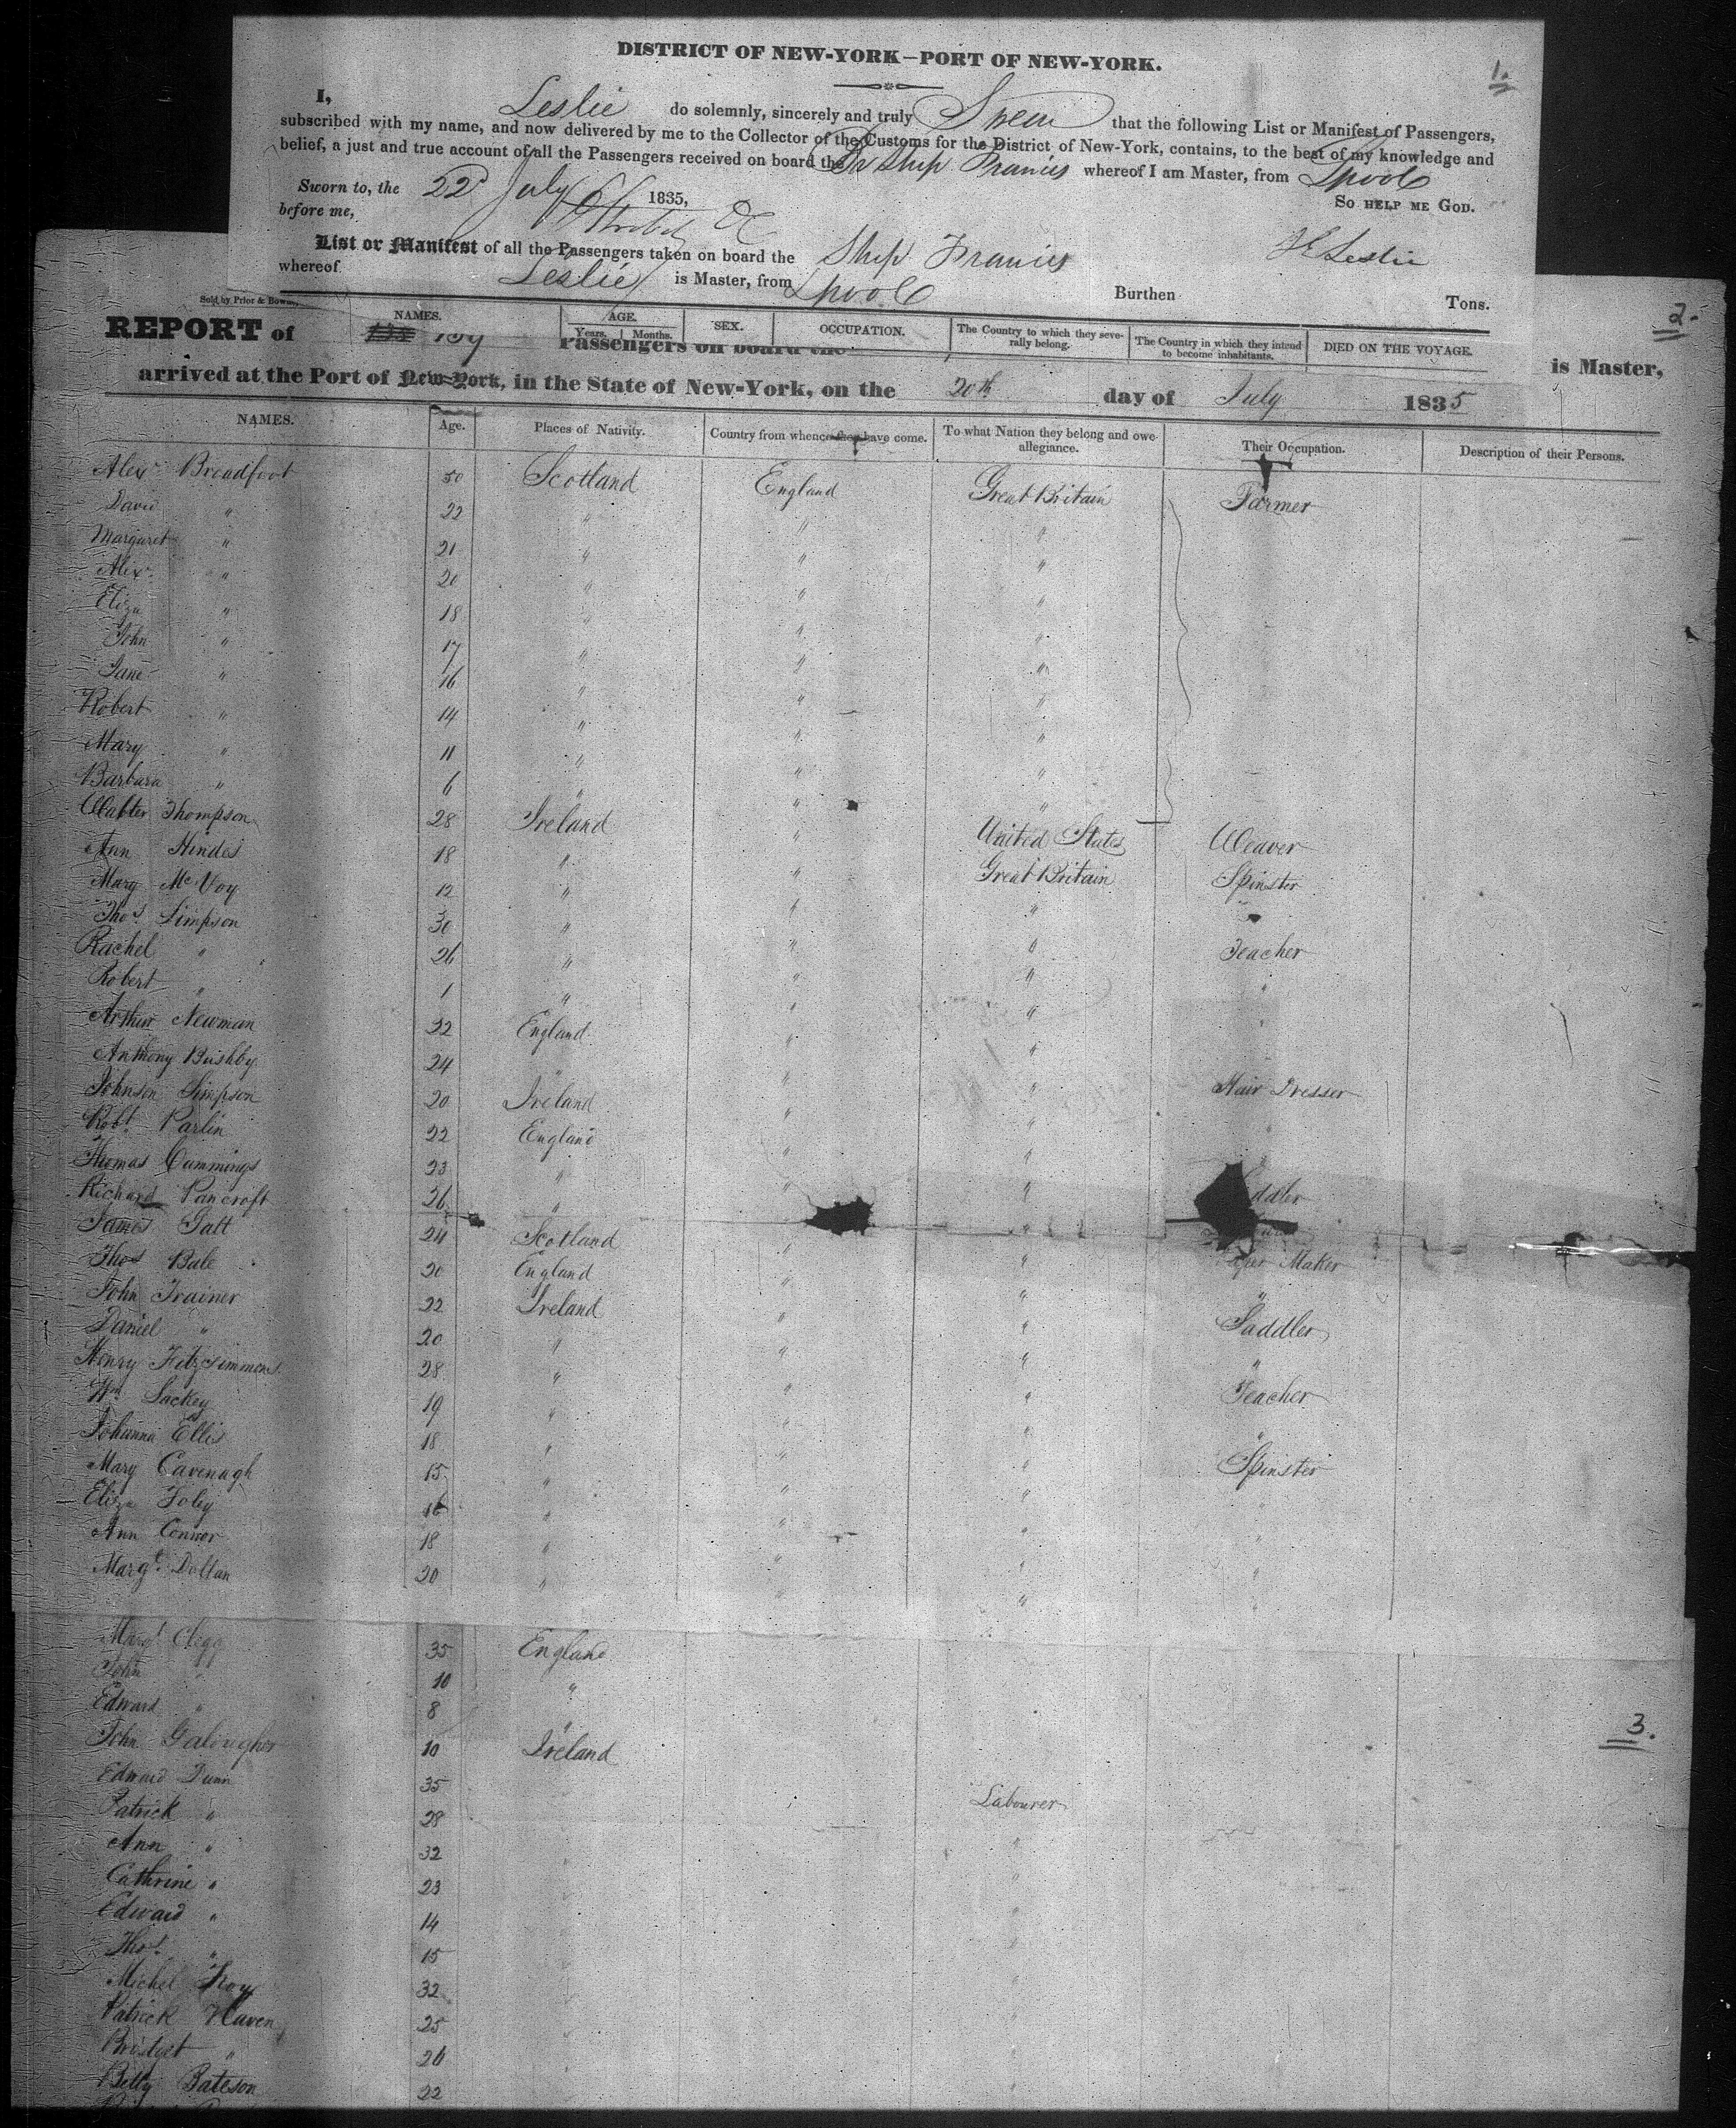 DISTRICT OF NEW-YORK—PORT OF NEW-YORK.
1.
I, Leslie do solemnly, sincerely and truly Swear that the following List or Manifest of Passengers,
subscribed with my name, and now delivered by me to the Collector of the Customs for the District of New-York, contains, to the best of my knowledge and
belief, a just and true account of all the Passengers received on board the Br Ship Francis whereof I am Master, from Lpool
Sworn to, the 22d July 1835, So HELP ME GOD.
before me,
List or Manifest of all the Passengers taken on board the Ship Francis Leslie
whereof Leslie is Master, from Lpool Burthen Tons.
Sold by Prior &
NAMES. AGE. Years. Months. SEX. OCCUPATION. The Country to which they severally belong. The Country in which they intend to become inhabitants. DIED ON THE VOYAGE.
2.
REPORT of 139 Passengers on board the is Master,
arrived at the Port of New-York, in the State of New-York, on the 20th day of July 1835
NAMES. Age. Places of Nativity. Country from whence they have come. To what Nation they belong and owe allegiance. Their Occupation. Description of their Persons.
Alexr Broadfoot 50 Scotland England Great Britain Farmer
David " 22 " " "
Margaret " 21 " " "
Alexr " 20 " " "
Eliza " 18 " " "
John " 17 " " "
Jane " 16 " " "
Robert " 14 " " "
Mary " 11 " " "
Barbara " 6 " " "
Walter Thompson 28 Ireland " United States Weaver
Ann Hindes 18 " " Great Britain Spinster
Mary McVoy 12 " " " "
Thos Simpson 30 " " " Teacher
Rachel " 26 " " " "
Robert " 1 " " " "
Arthur Newman 32 England " "
Anthony Bushby 24 " " " Hair Dresser
Johnson Simpson 20 Ireland " " "
Robt Parlin 22 England " "
Thomas Cummings 23 " " " ddler
Richard Pancroft 26 " "
James Galt 24 Scotland " " Paper Maker
Thos Bale 20 England " " "
John Trainer 22 Ireland " " Saddler
Daniel " 20 " " " "
Henry Fitzsimmons 28 " " " Teacher
Wm Lackey 19 " " " "
Johanna Ellis 18 " " " Spinster
Mary Cavenagh 15 " " " "
Eliza Foley 16 " " " "
Ann Connor 18 " " " "
Margt Dollan 20 " " " "
Margt Clegg 35 England
John " 10 "
Edward " 8 "
3.
John Galougher 10 Ireland
Edward Dunn 35 Labourer
Patrick " 28 "
Ann " 32
Cathrine " 23
Edward " 14
Thos " 15
Michel 32
Patrick 25
Bridget " 26
Betty Bateson 22